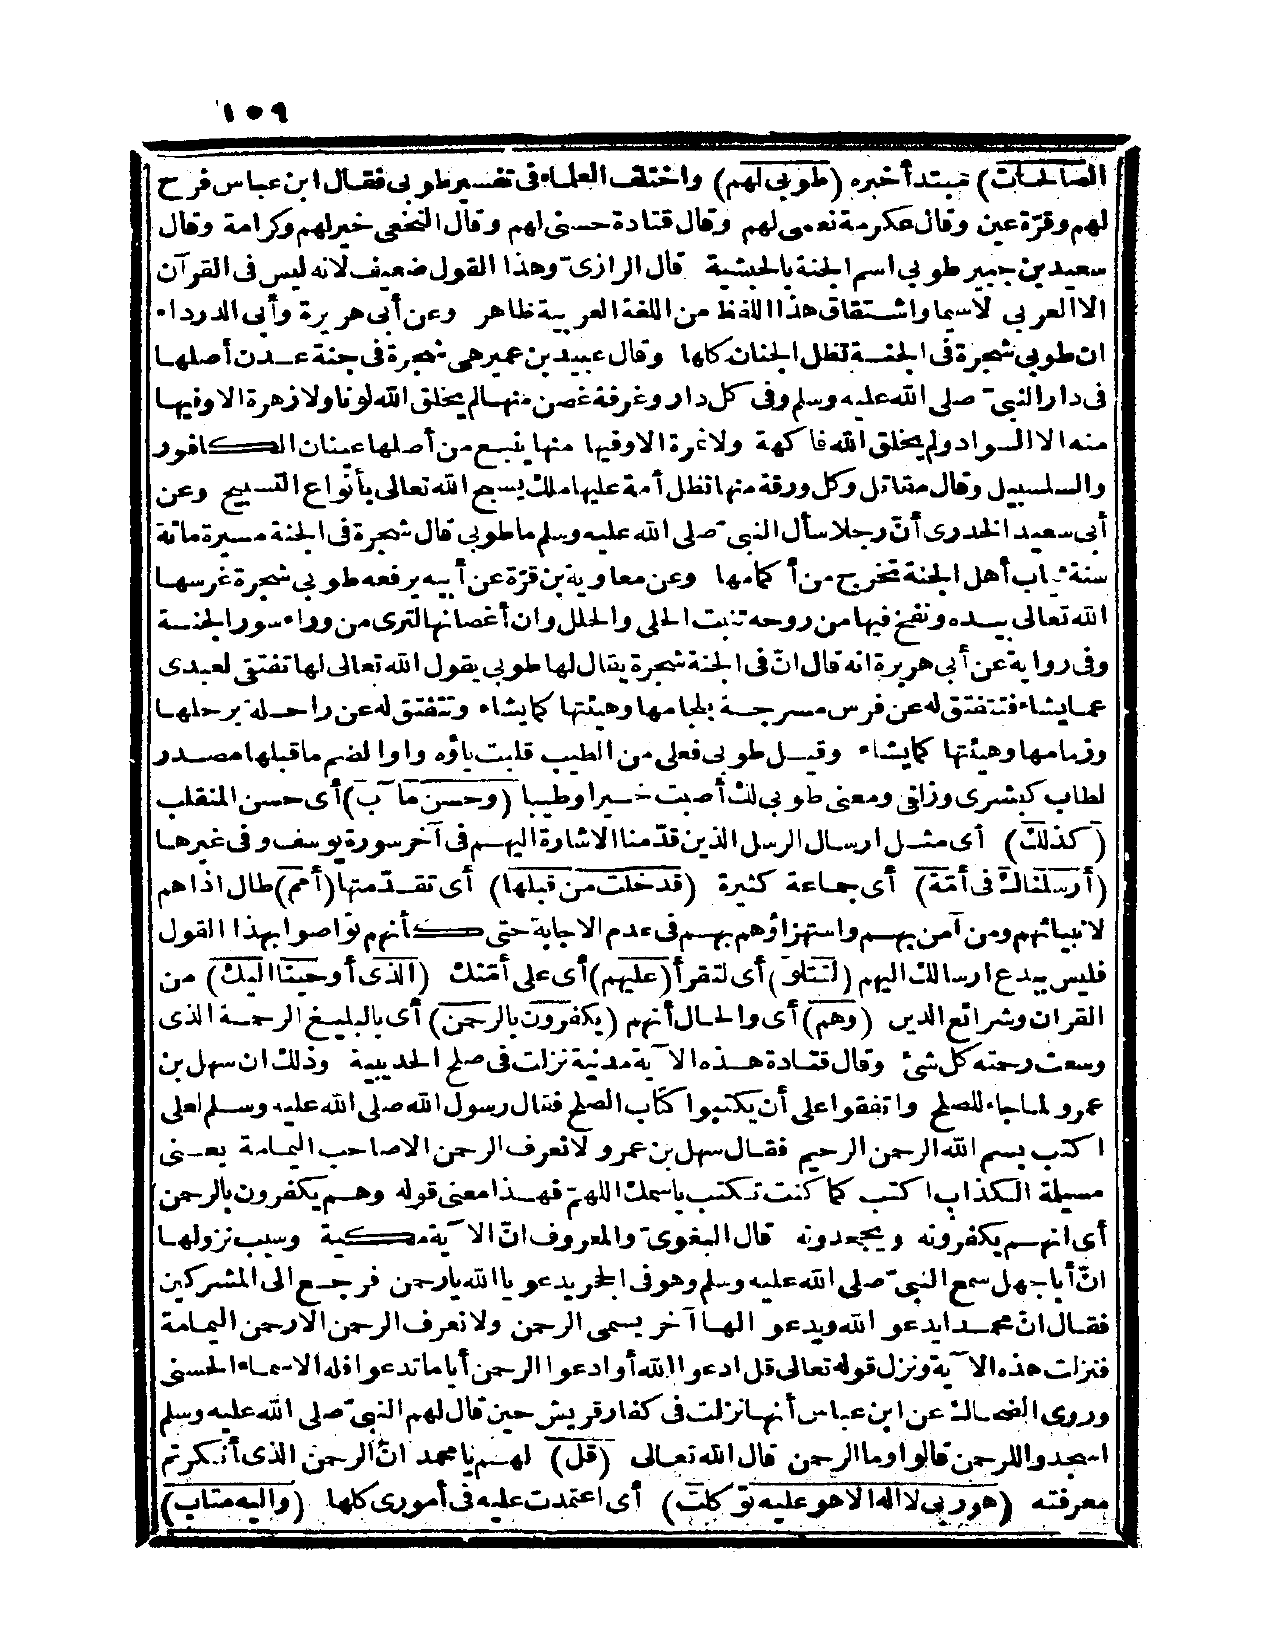 ١٥٩
الصالحات) مبتدأ خبره (طوبى لهم) واختلف العلماء فى تفسير طوبى فقال ابن عباس فرح
لهم وقرّة عين وقال عكرمة نعمى لهم وقال قتادة حسنى لهم وقال النخعى خير لهم وكرامة وقال
سعيد بن جبير طوبى اسم الجنة بالحبشية قال الرازىّ وهذا القول ضعيف لانه ليس فى القرآن
الا العربى لاسيما واشتقاق هذا اللفظ من اللغة العربية ظاهر وعن أبى هريرة وأبى الدرداء
ان طوبى شجرة فى الجنة تظل الجنان كلها وقال عبيد بن عمير هى شجرة فى جنة عدن أصلها
فى دار النبىّ صلى الله عليه وسلم وفى كل دار وغرفة غصن منها لم يخلق الله لونا ولا زهرة الا وفيها
منه الا السواد ولم يخلق الله فاكهة ولا ثمرة الا وفيها منها ينبع من أصلها عينان الكافور
والسلسبيل وقال مقاتل وكل ورقة منها تظل أمة عليها ملك يسبح الله تعالى بأنواع التسبيح وعن
أبى سعيد الخدرى أنّ رجلا سأل النبىّ صلى الله عليه وسلم ما طوبى قال شجرة فى الجنة مسيرة مائة
سنة ثياب أهل الجنة تخرج من أكمامها وعن معاوية بن قرّة عن أبيه يرفعه طوبى شجرة غرسها
الله تعالى بيده ونفخ فيها من روحه تنبت الحلى والحلل وان أغصانها لترى من وراء سور الجنة
وفى رواية عن أبى هريرة انه قال انّ فى الجنة شجرة يقال لها طوبى يقول الله تعالى لها تفتق لعبدى
عما يشاء فتتفتق له عن فرس مسرجة بلجامها وهيئتها كما يشاء وتتفتق له عن راحلة برحلها
وزمامها وهيئتها كما يشاء وقيل طوبى فعلى من الطيب قلبت ياؤه واوا لضم ما قبلها مصدر
لطاب كبشرى وزلفى ومعنى طوبى لك أصبت خيرا وطيبا (وحسن مآب) أى حسن المنقلب
(كذلك) أى مثل ارسال الرسل الذين قدّمنا الاشارة اليهم فى آخر سورة يوسف وفى غيرها
(أرسلناك فى أمّة) أى جماعة كثيرة (قد خلت من قبلها) أى تقدّمتها (أمم) طال اذاهم
لانبيائهم ومن آمن بهم واستهزاؤهم بهم فى عدم الاجابة حتى كأنهم تواصوا بهذا القول
فليس ببدع ارسالك اليهم (لتتلو) أى لتقرأ (عليهم) أى على أمّتك (الذى أوحينا اليك) من
القرآن وشرائع الدين (وهم) أى والحال أنهم (يكفرون بالرحمن) أى بالبليغ الرحمة الذى
وسعت رحمته كل شئ وقال قتادة هذه الآية مدنية نزلت فى صلح الحديبية وذلك ان سهل بن
عمرو لما جاء للصلح واتفقوا على أن يكتبوا كتاب الصلح فقال رسول الله صلى الله عليه وسلم لعلى
اكتب بسم الله الرحمن الرحيم فقال سهل بن عمرو لا نعرف الرحمن الا صاحب اليمامة يعنى
مسيلة الكذاب اكتب كما كنت تكتب باسمك اللهمّ فهذا معنى قوله وهم يكفرون بالرحمن
أى انهم يكفرونه ويجحدونه قال البغوىّ والمعروف انّ الآية مكية وسبب نزولها
انّ أبا جهل سمع النبىّ صلى الله عليه وسلم وهو فى الحجر يدعو يا الله يا رحمن فرجع الى المشركين
فقال انّ محمدا يدعو الله ويدعو الها آخر يسمى الرحمن ولا نعرف الرحمن الا رحمن اليمامة
فنزلت هذه الآية ونزل قوله تعالى قل ادعوا الله أو ادعوا الرحمن أياما تدعوا فله الاسماء الحسنى
وروى الضحاك عن ابن عباس أنها نزلت فى كفار قريش حين قال لهم النبىّ صلى الله عليه وسلم
اسجدوا للرحمن قالوا وما الرحمن قال الله تعالى (قل) لهم يا محمد انّ الرحمن الذى أنكرتم
معرفته (هو ربى لا اله الا هو عليه توكلت) أى اعتمدت عليه فى أمورى كلها (واليه متاب)